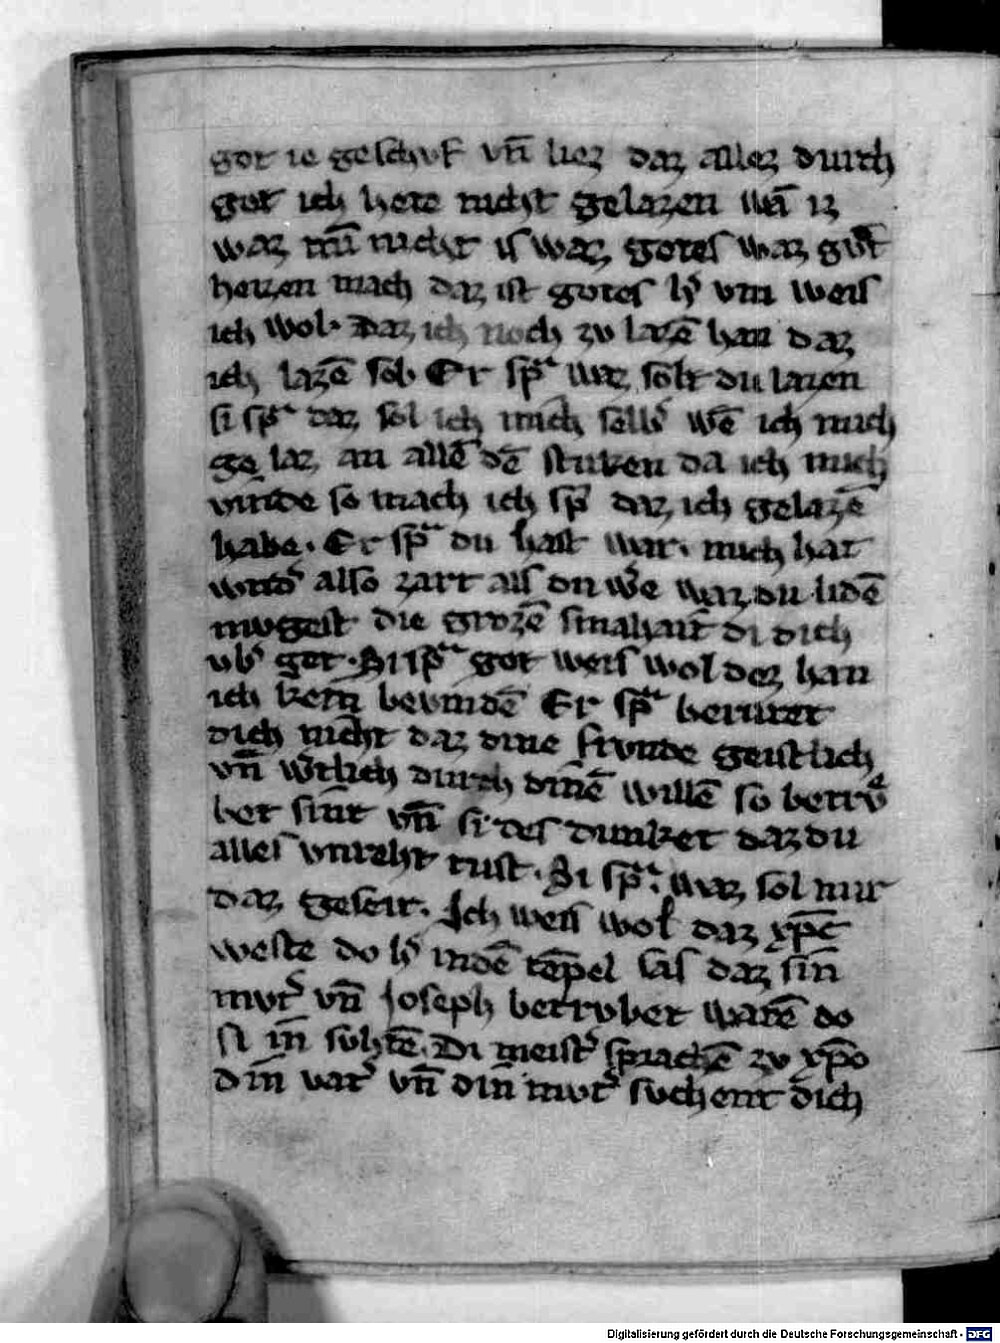 got ie geschvf vn̄ liez daz allez durch
got ich hete nicht gelazen wā iz
waz mī nicht is waz gotes waz gvt̄
herzen mach daz ist gotes
ich wol. Daz ich noch zv lazē han daz
ich lazē sol. Er spͣ waz solt du lazen
si spͣ daz sol ich mich selbˀ wē ich mich
ge laz an allē dē stuken da ich mich
vinde so mach ich spͣ daz ich gelazē
habe. Er spͣ du hast war. mich hat
also zart als waz du lidē
mvgest die grozē smahait di dich
vbˀ get. Si spͣ got weis wol dez han
ich kein bevindē Er spͣ beruret
dich nicht daz dine frvnde geistlich
vn̄ wˀtlich durch dinē willē so betrv̊
bet sint vn̄ si des dunket daz du
alles vnreht tust. Si spͣ. waz sol mir
daz geseit. Ich weis wol daz xp̄c
weste do in dē tēpel sas daz sin
mvtˀ vn̄ Joseph betrvbet warē do
si in̄ svhtē. Di meistˀ sprachē zv xp̄o
din̄ vatˀ vn̄ din̄ mvtˀ svchent dich
Digitalisierung gefördert durch die Deutsche Forschungsgemeinschaft - DFG